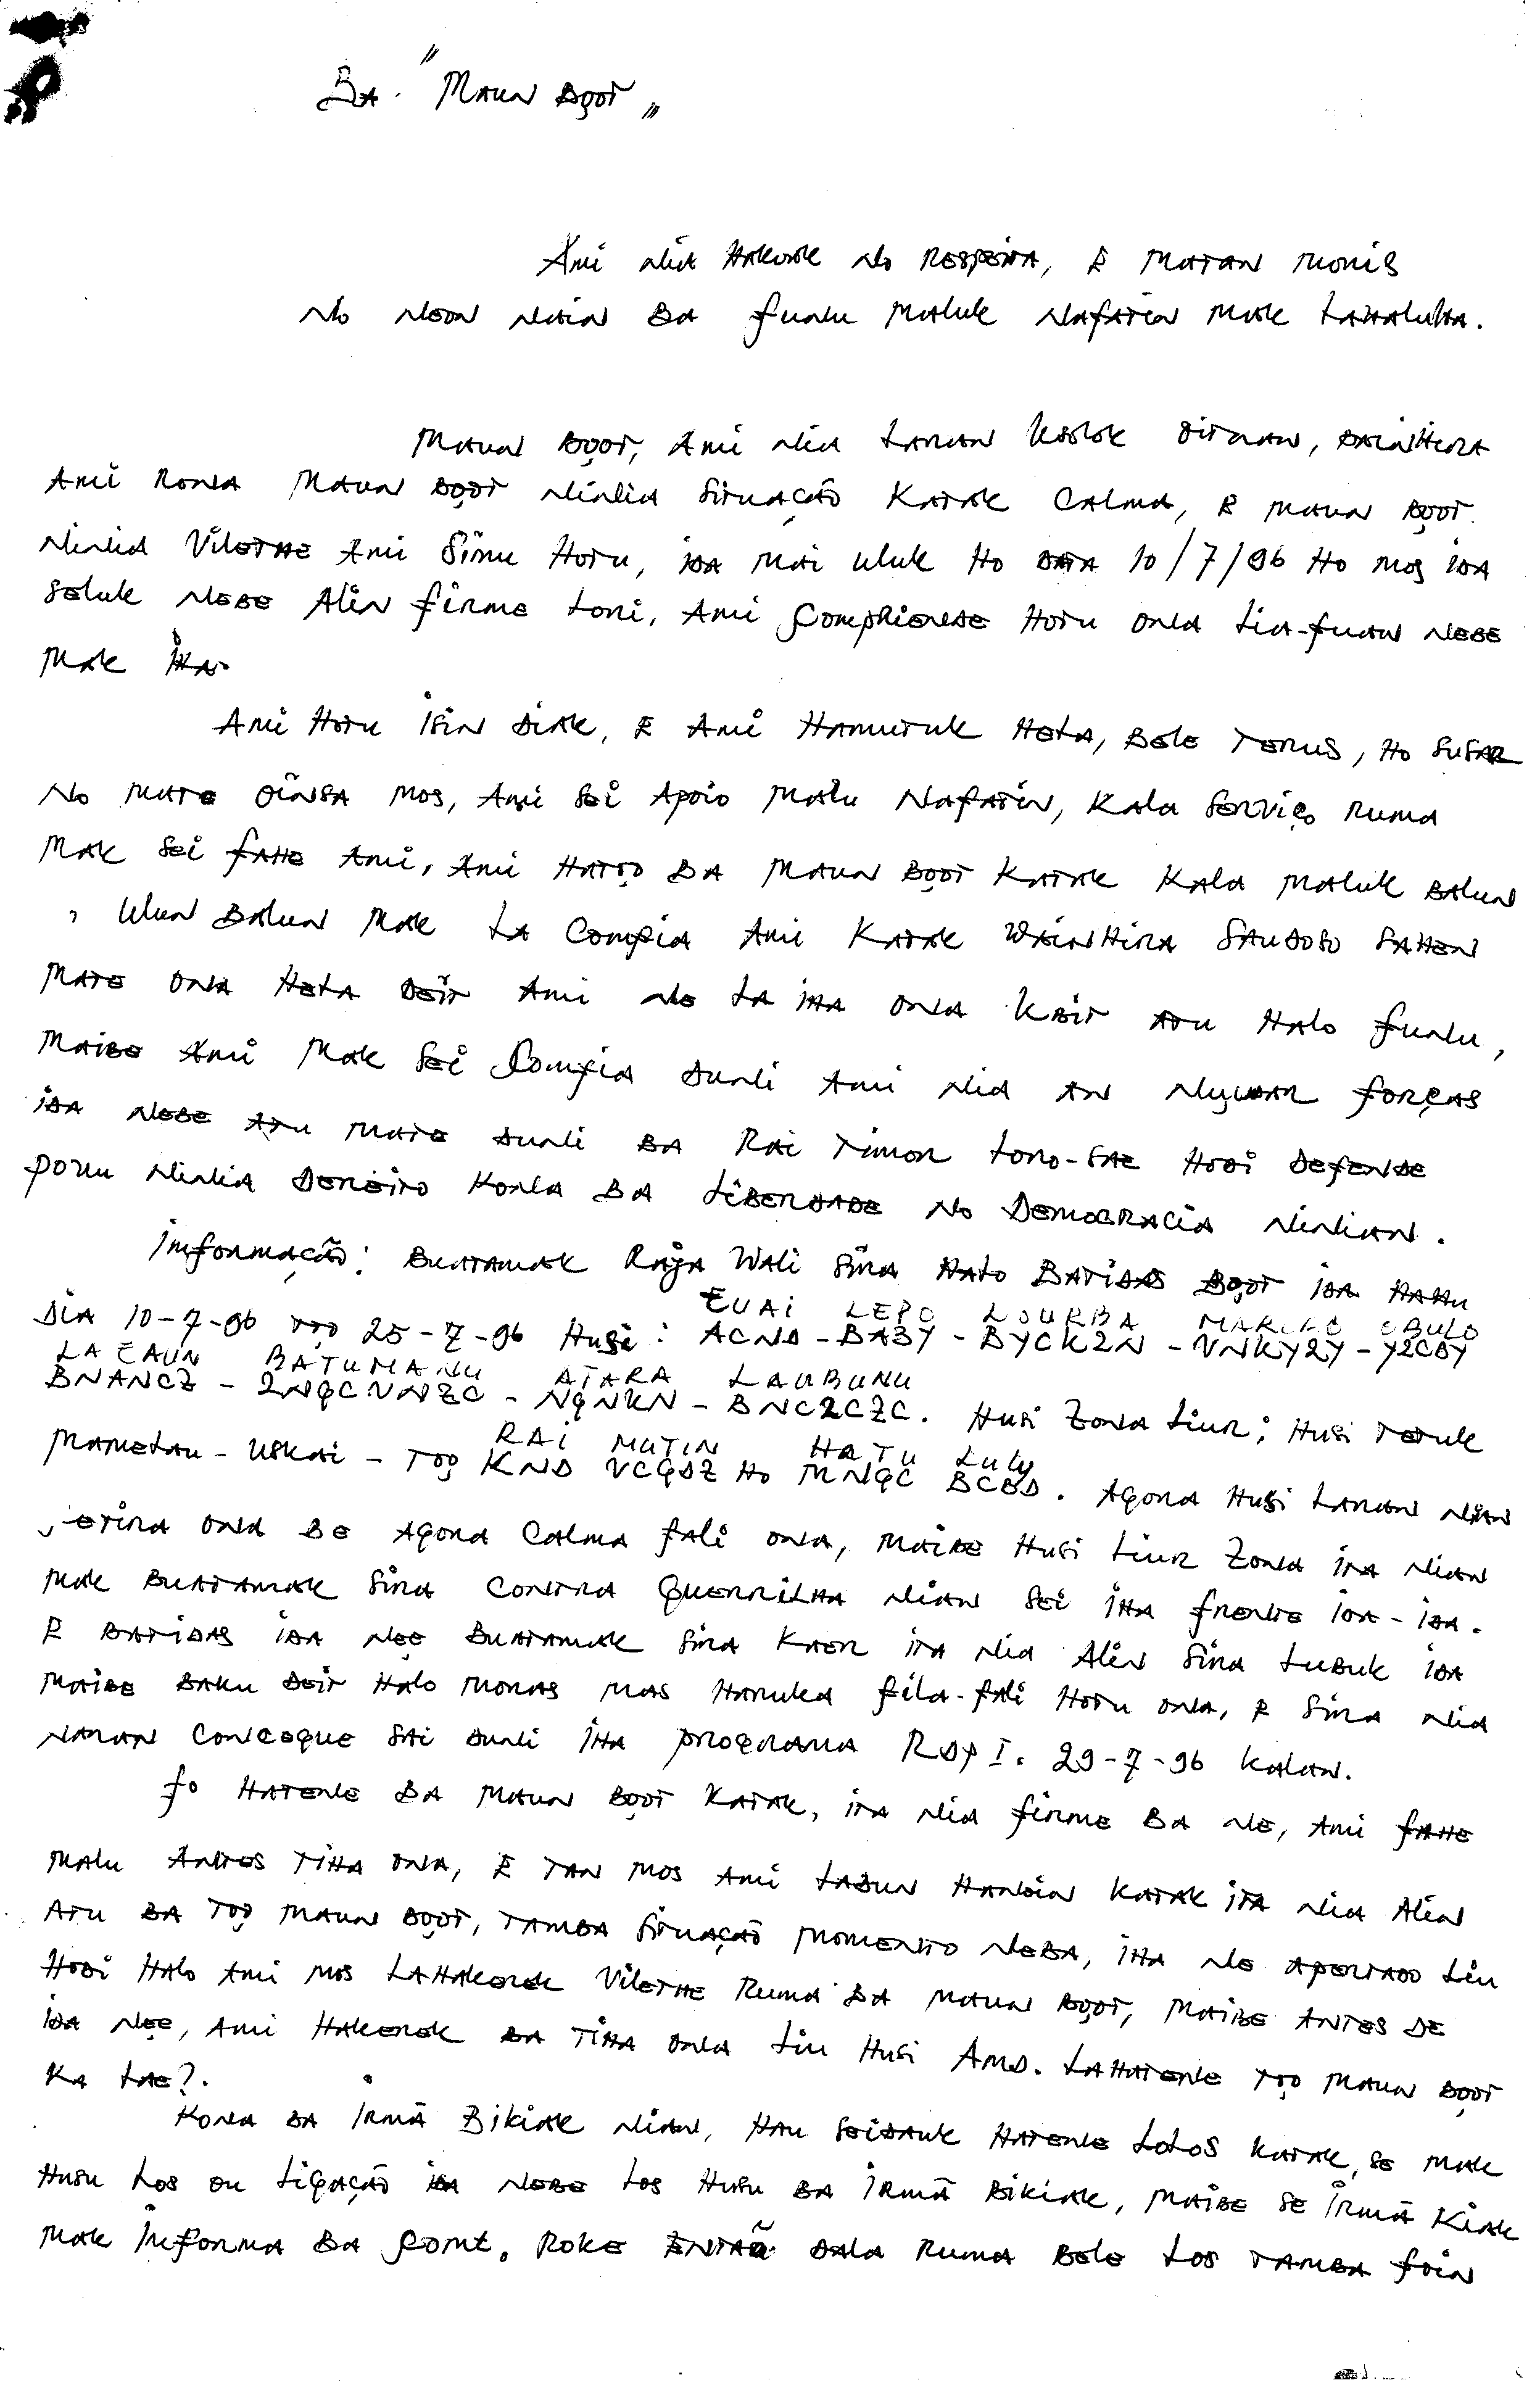 Ba. "Maun Boot"
Ami nia Hakuak no Respeita, E Matan Monis
no Neon Nain Ba funu Maluk Nafatin Mak Lahaluha.
Maun Boot, Ami nia Laran Ksolok oitnan, Wainhira
Ami Rona Maun Boot ninia Situação Katak Calma, E Maun Boot
ninia Vilethe Ami Simu Hotu, ida Mai uluk Ho Data 10/7/96 Ho Mos ida
Seluk Nebe Alin firme Lori, Ami Compriende Hotu ona Lia-fuan Nebe
Mak iha.
Ami Hotu isin Diak, E Ami Hamutuk Hela, Bele Terus, Ho Susar
no Mate oinsa Mos, Ami sei Apoio Malu Nafatin, Kala Serviço Ruma
Mak sei fahe Ami, Ami Hatoo Ba Maun Boot Katak Kala Maluk Balun
, ulun Balun Mak La Compia Ami Katak Wainhira Saudoso Sahen
Mate ona Hela Deit Ami ne La iha ona Kbit Atu Halo funu,
Maibe Ami Mak Sei Compia Duni Ami nia An Nuudar forças
ida Nebe Atu Mate Duni Ba Rai Timor Loro-Sae Hodi Defende
Povu ninia Dereito Kona Ba Liberdade no Democracia ninian.
Imformação: Buatamak Raja Wali Sira Halo Batidas Boot ida Hahu
EUAI LEPO LOURBA MARLLO OBULO
Dia 10-7-96 too 25-7-96 Husi: ACND - BA3Y - BYCK2N - VNKY2Y - Y2CBY
LAEAUN BATUMANU ATARA LAUBUNU
BNANCZ - 2NQCVNZC - NQNKN - BNC2CZC. Husi Zona Liur; Husi Tetuk
RAI MUTIN HATU LULY
Mametau - Uskai - Too KND VCQDZ Ho MNQC BCBD. Agora Husi Laran nian
, etira ona Be Agora Calma fali ona, Maibe Husi Liur Zona ita nian
Mak Buatamak Sira Contra Guerrilha nian sei iha frente ida-ida.
E Batidas ida nee Buatamak Sira Kaer ita nia Alin Sira Lubuk ida
Maibe Baku Deit Halo Moras Mas Haruka fila-fali Hotu ona, E Sira nia
Naran Conceque Sai Duni iha programa RDP I. 29-7-96 Kalan.
fo Hatene Ba Maun Boot Katak, ita nia firme Ba ne, Ami fahe
Malu Antes Tiha ona, E Tan Mos Ami Ladun Hanoin Katak ita nia Alin
Atu Ba Too Maun Boot, Tamba Situação Momento Neba, iha ne Apertado Liu
Hodi Halo Ami Mos Lahakerek Vilethe Ruma Ba Maun Boot, Maibe Antes de
ida nee, Ami Hakerek Ba Tiha ona Liu Husi AMD. Lahatene Too Maun Boot
Ka Lae?.
Kona Ba Irmã Bikiak nian, Hau Seidauk Hatene Lolos Katak, se Mak
Husu Los ou Ligação ida Nebe Los Husu Ba Irmã Bikiak, Maibe se Irmã Kiak
Mak Informa Ba Comt. Roke Entaã Dala Ruma Bele Los Tamba foin